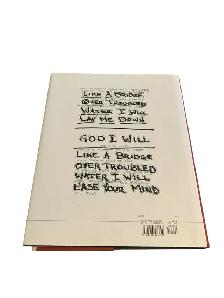 LIKE A BRIDGE
OVER TROUBLED
WATER I WILL
LAY ME DOWN
GOD I WILL
LIKE A BRIDGE
OVER TROUBLED
WATER I WILL
EASE YOUR MIND